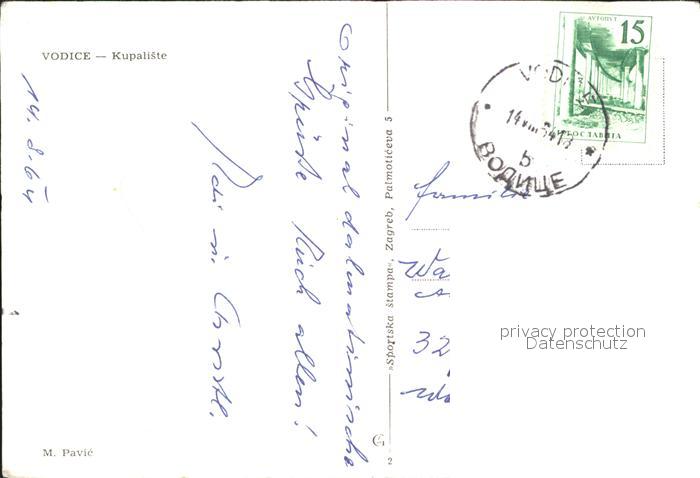 VODICE — Kupalište
14.8.64
Original dalmatinische
Grüsse Euch allen!
M. Pavić
»Sportska štampa«, Zagreb, Palmotićeva 5
2
15
VODICE
14 VIII 64 13
b
ВОДИЦЕ
Familie
Wa
32
privacy protection
Datenschutz